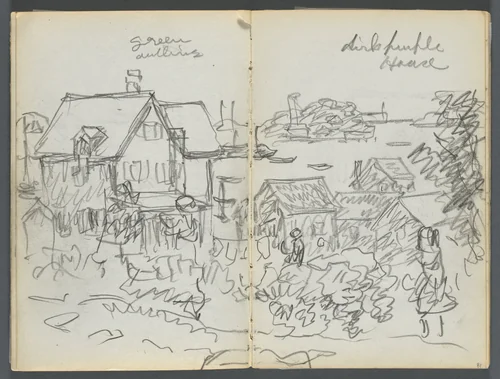 green
outline
dirk purple
House